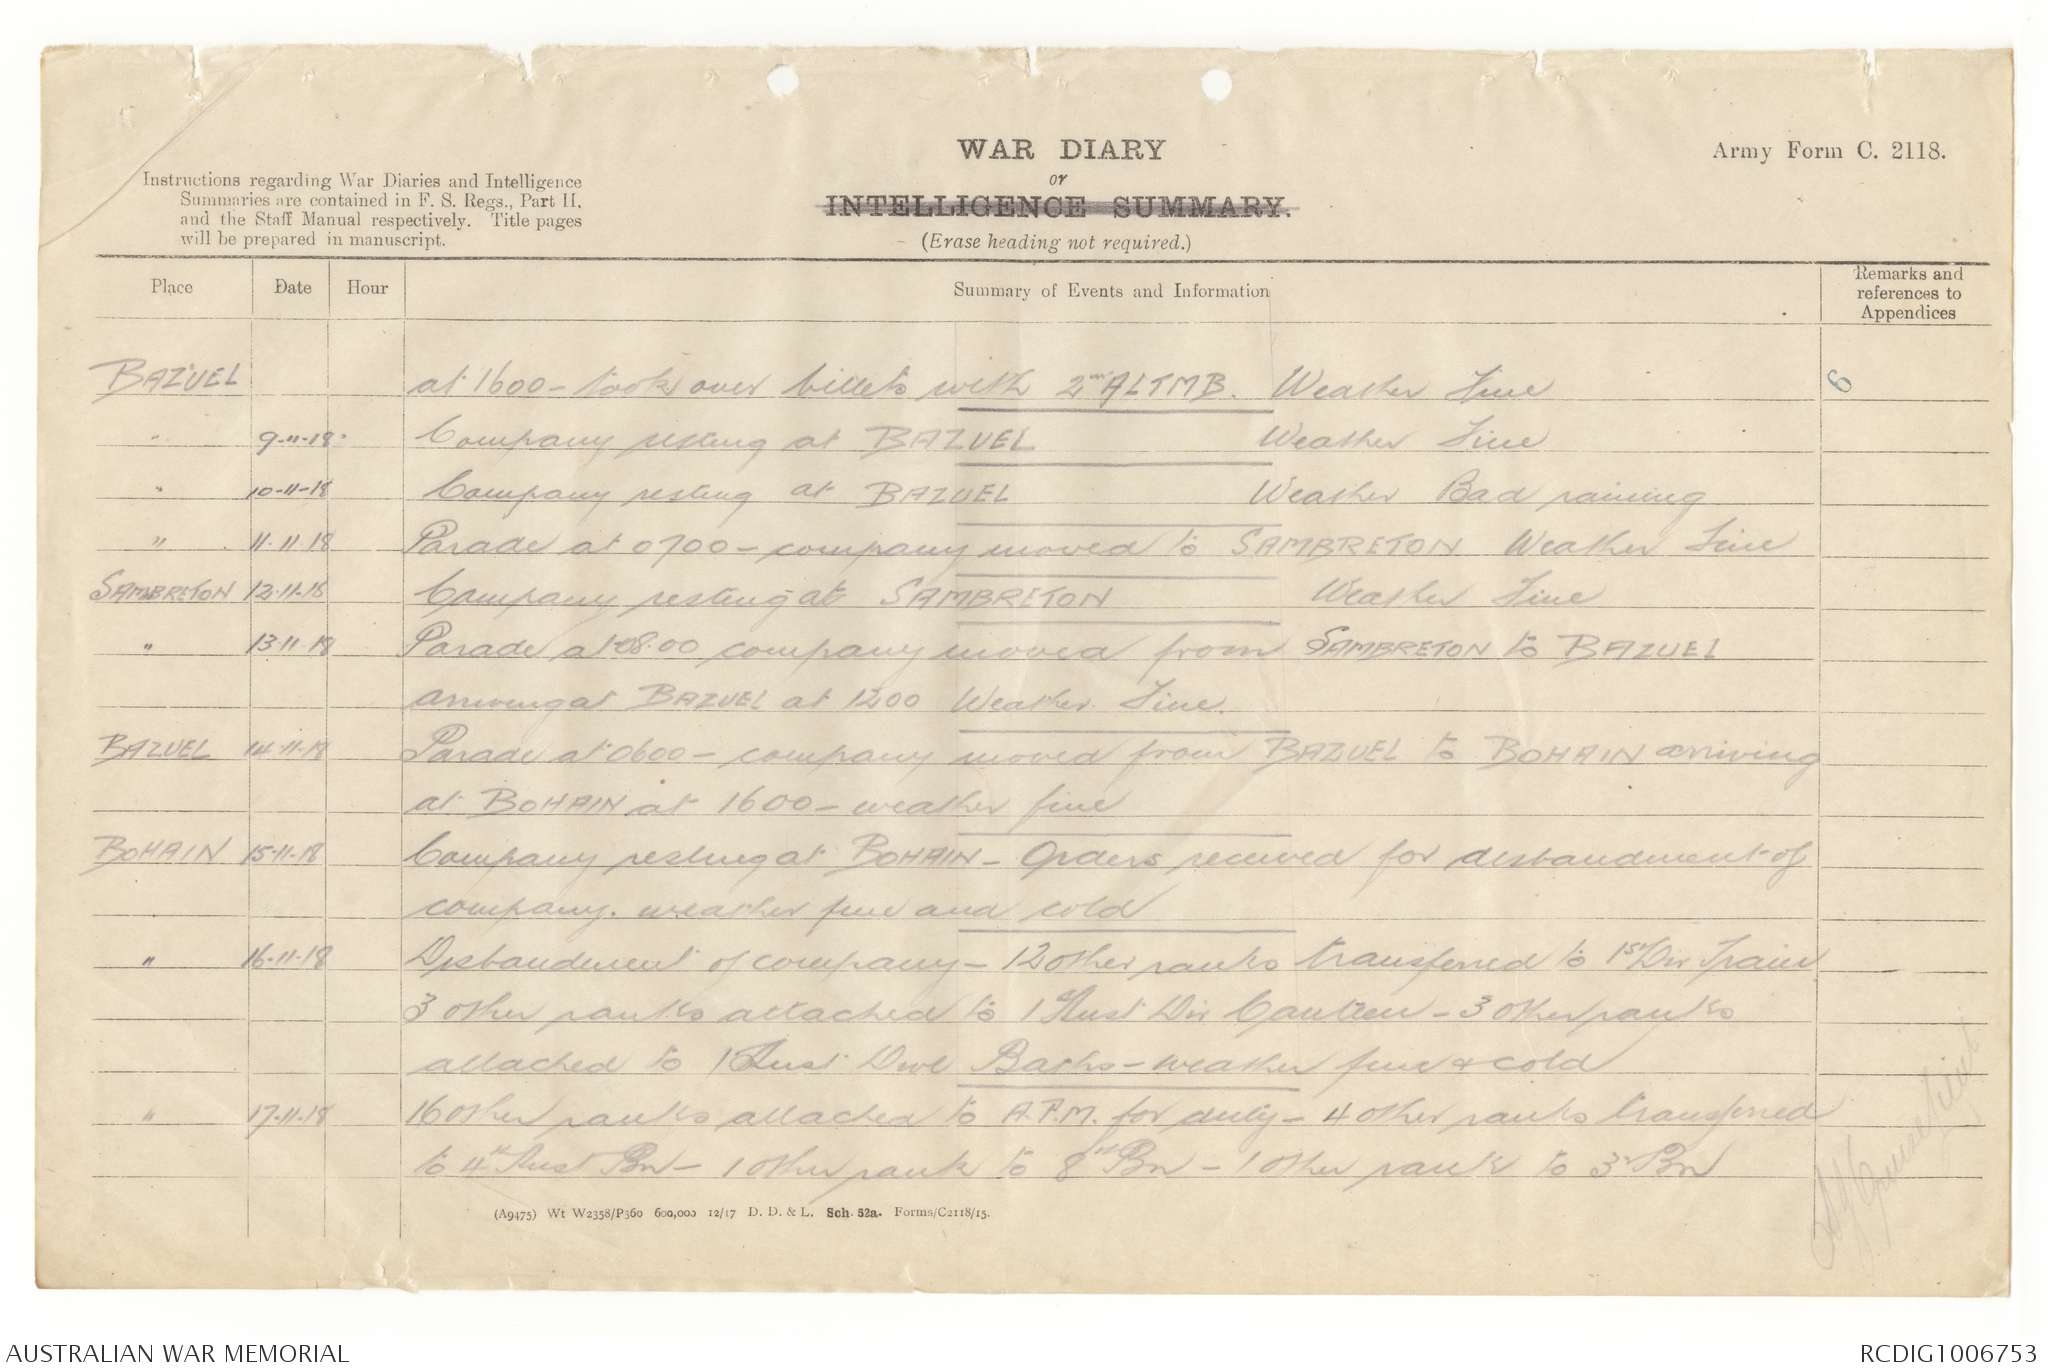 WAR DIARY
or
INTELLIGENCE SUMMARY.
(Erase heading not required.)
Army Form C. 2118.
Instructions regarding War Diaries and Intelligence
Summaries are contained in F. S. Regs., Part II,
and the Staff Manual respectively. Title pages
will be prepared in manuscript.
Place Date Hour Summary of Events and Information Remarks and references to Appendices
BAZUEL at 1600 - took over billets with 2nd ALTMB. Weather Fine 6
" 9-11-18 Company resting at BAZUEL Weather Fine
" 10-11-18 Company resting at BAZUEL Weather Bad raining
" 11.11.18 Parade at 0700 - company moved to SAMBRETON Weather Fine
SAMBRETON 12.11.18 Company resting at SAMBRETON Weather Fine
" 13.11.18 Parade at 08.00 company moved from SAMBRETON to BAZUEL
arriving at BAZUEL at 1200 Weather Fine.
BAZUEL 14.11.18 Parade at 0600 - company moved from BAZUEL to BOHAIN arriving
at BOHAIN at 1600 - weather fine
BOHAIN 15.11.18 Company resting at BOHAIN - Orders received for disbandment of
company. weather fine and cold
" 16.11.18 Disbandment of company - 12 other ranks transferred to 1st Div Train
3 other ranks attached to 1 Aust Div Canteen - 3 other ranks
attached to 1 Aust Divl Baths - weather fine & cold
" 17.11.18 16 other ranks attached to A.P.M. for duty - 4 other ranks transferred
to 4th Aust Bn - 1 other rank to 8th Bn - 1 other rank to 3r Bn
(A9475) Wt W2358/P360 600,000 12/17 D. D. & L. Sch. 52a. Forms/C2118/15.
AUSTRALIAN WAR MEMORIAL
RCDIG1006753